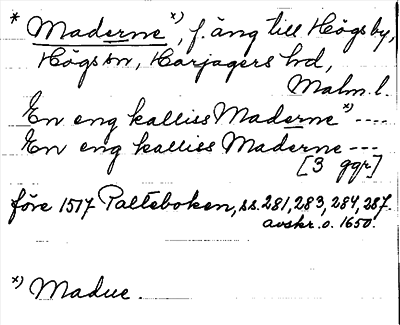 * Maderne x), f. äng till Högsby,
Högs sn, Harjagers hd,
Malm. l.
En eng kalliss Maderne x) ----
En eng kalliss Maderne ---
[3 ggr]
före 1517 Palteboken, ss. 281, 283, 284, 287.
avskr. o. 1650.
x) Madue.